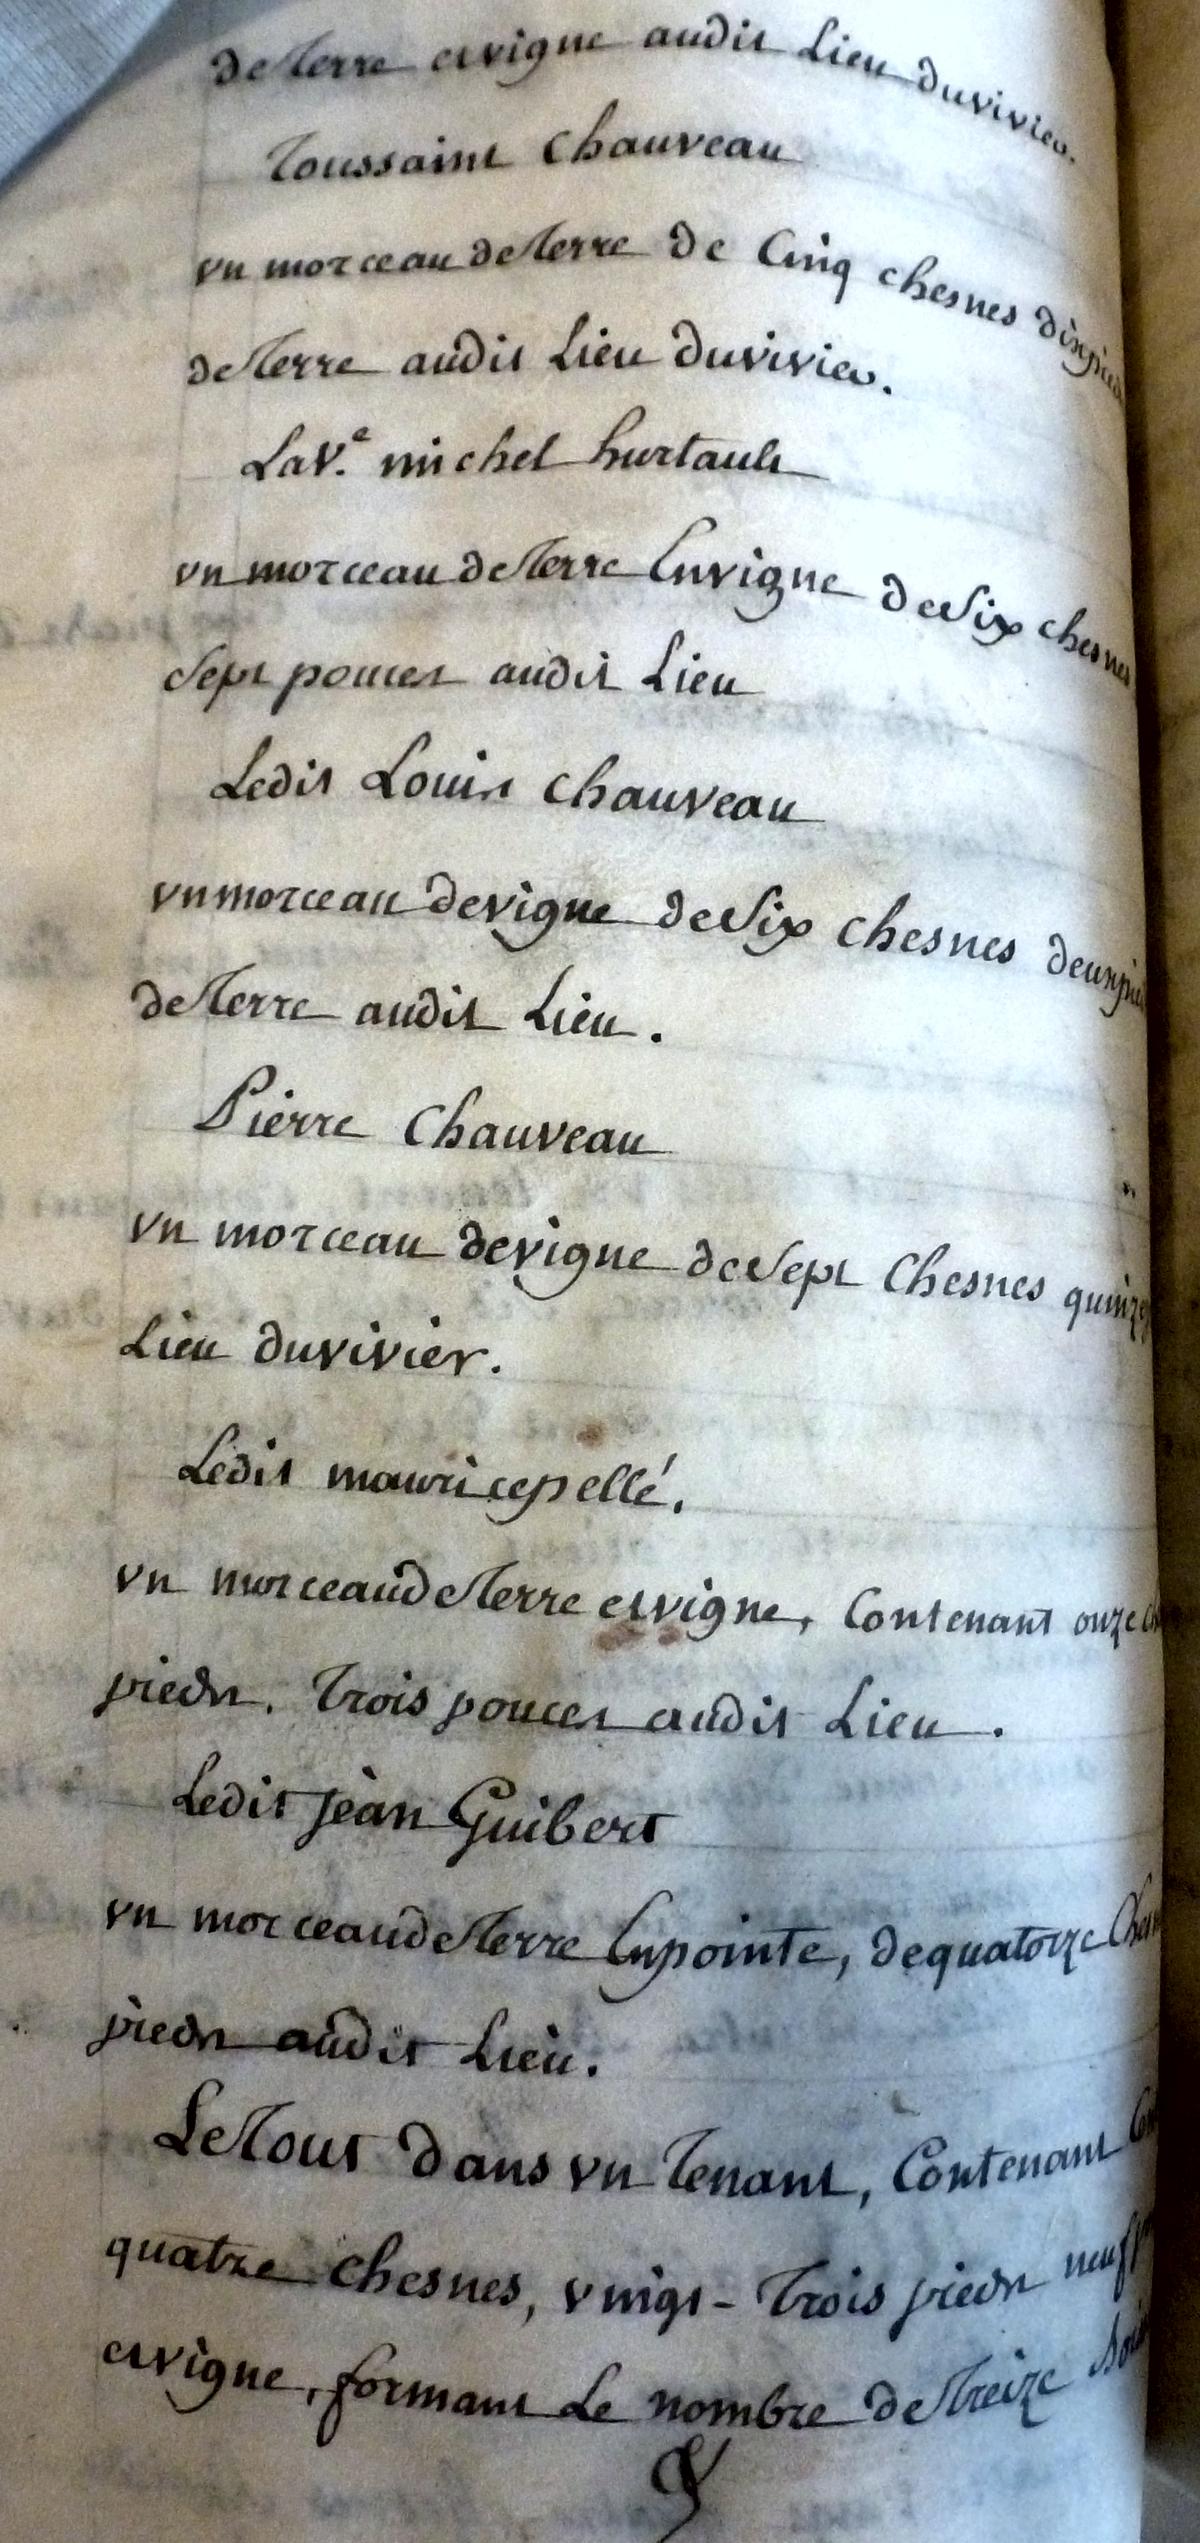 de terre et vigne audit Lieu du vivier.
Toussaint Chauveau
vn morceau de terre de Cinq chesnes dix pieds
de terre audit Lieu du vivier.
La V.e michel hurtault
vn morceau de terre En vigne de Six chesnes
Sept pouces audit Lieu
Ledit Louis Chauveau
vn morceau de vigne de Six chesnes deux pieds
de terre audit Lieu.
Pierre Chauveau
vn morceau de vigne de Sept Chesnes quinze
Lieu du vivier.
Ledit maurice pellé.
vn morceau de terre et vigne, Contenant onze
pieds. Trois pouces audit Lieu.
Ledit jean Guibert
vn morceau de terre En pointe, de quatorze
pieds audit Lieu.
Le Tout dans vn Tenant, Contenant
quatre chesnes, vingt-Trois pieds neuf
et vigne, formant Le nombre de Treize